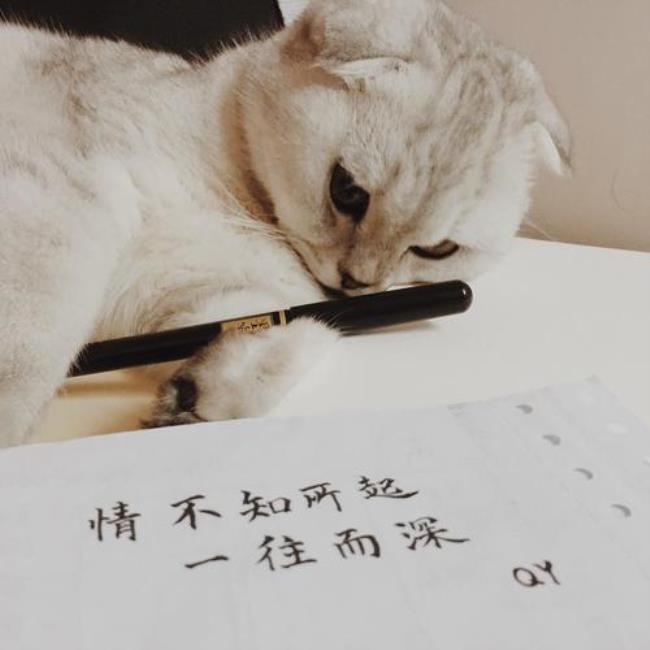 情不知所起
一往而深
QY